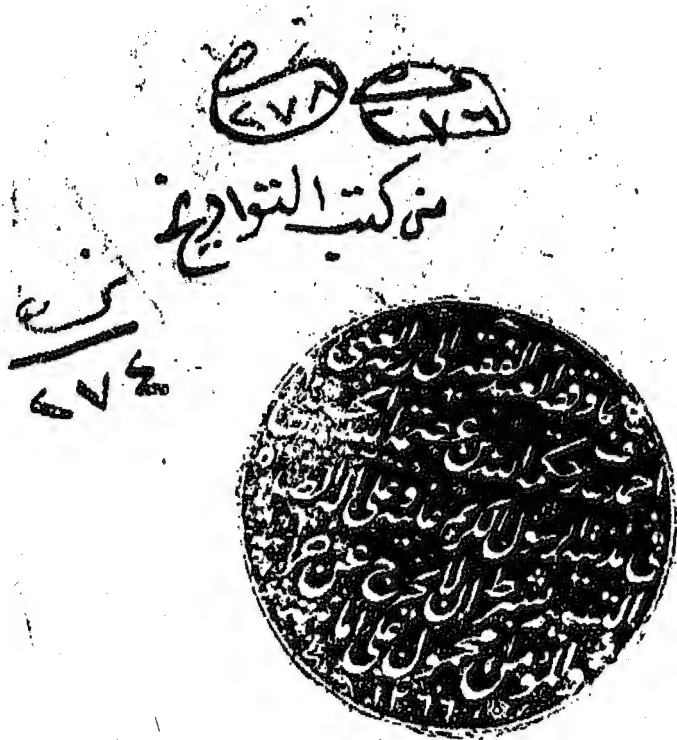 ٢٧٦ ٢٧٨
من كتب التواريخ
٢٧٤
مما وقفه العبد الفقير الى ربه الغني
احمد عارف حكمة الله بن عصمة الله الحسيني
في مدينة الرسول الكريم عليه وعلى آله
والتسليم بشرط ان لا يخرج عن
والمؤمن محمول على امانته
١٢٦٦